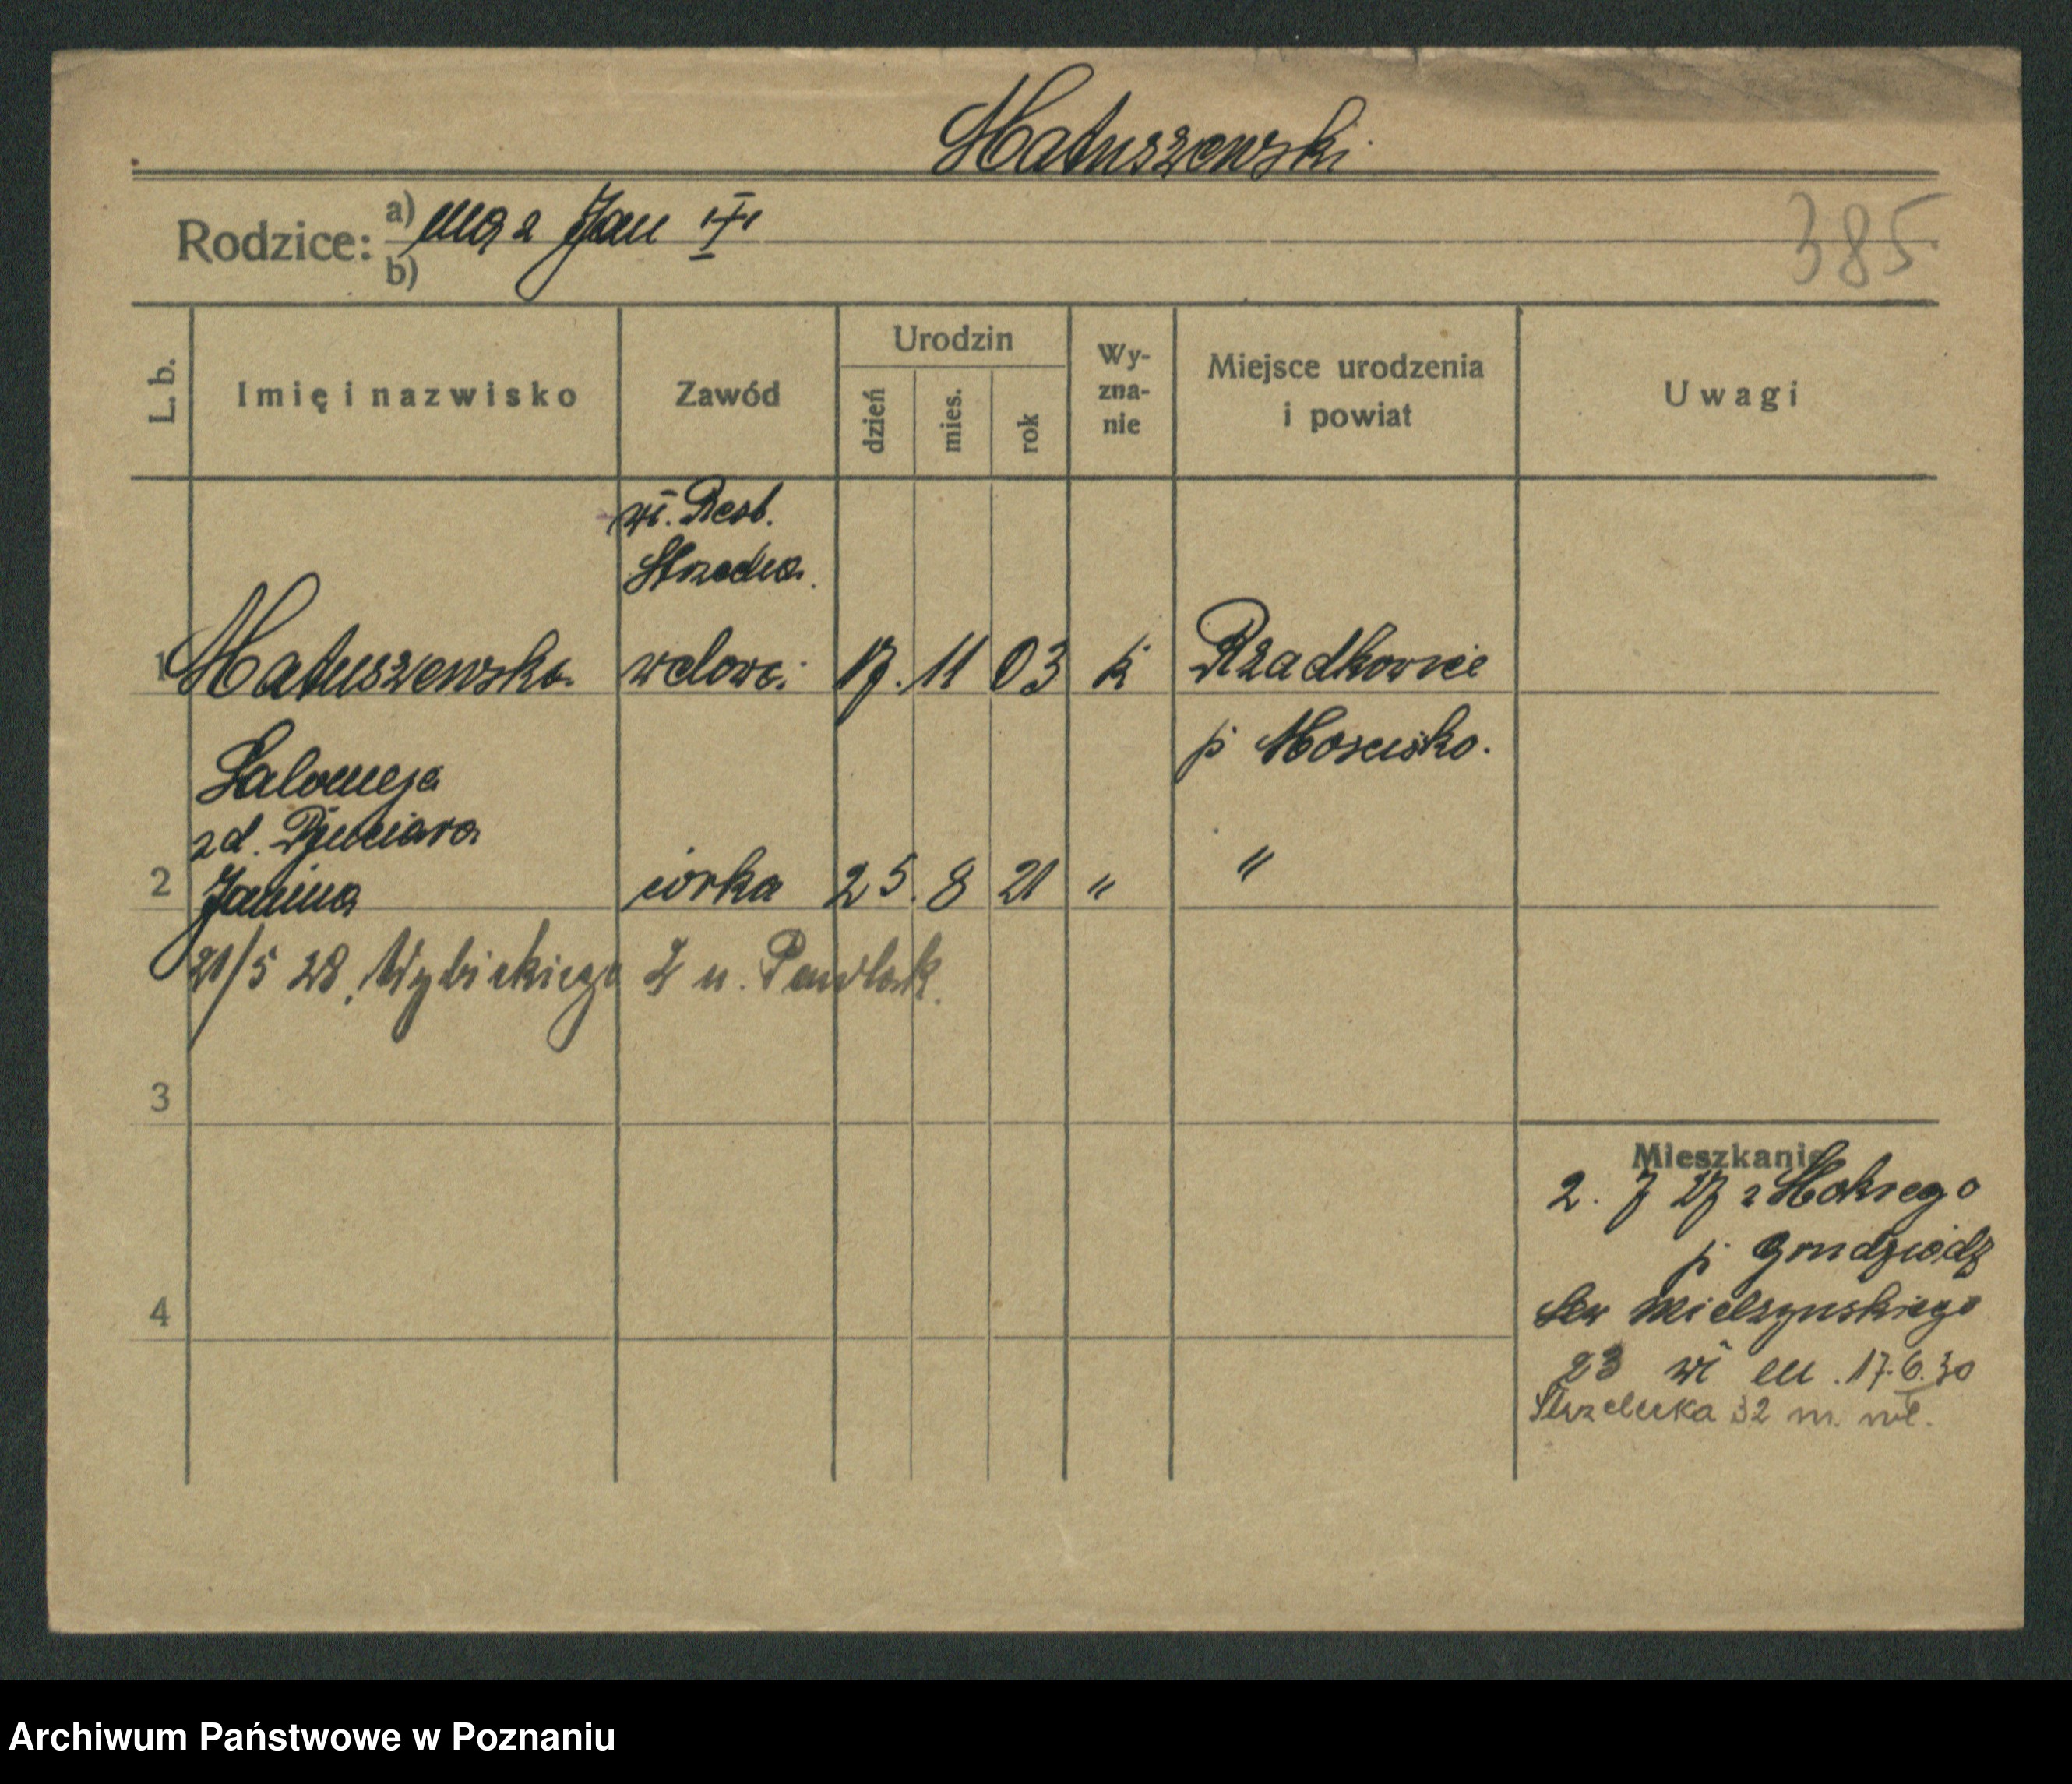 Matuszewski
Rodzice: a) mąż Jan
b)
385
L. b.
Imię i nazwisko
Zawód
Urodzin
dzień
mies.
rok
Wy-
zna-
nie
Miejsce urodzenia
i powiat
Uwagi
wł. Rest.
1 Matuszewska wdowa 17. 11 03 k Rzadkowice
p Mosciska.
Salomeja
zd.
2 Janina córka 25. 8 21 " "
21/5 28, Wybickiego u. Pawlak.
3
4
Mieszkanie
2. 7 27 z Mokrego
p Grudziądz
Sew Mielzynskiego
23 wł m. 17.6.30
Strzelecka 32 m. wł.
Archiwum Państwowe w Poznaniu